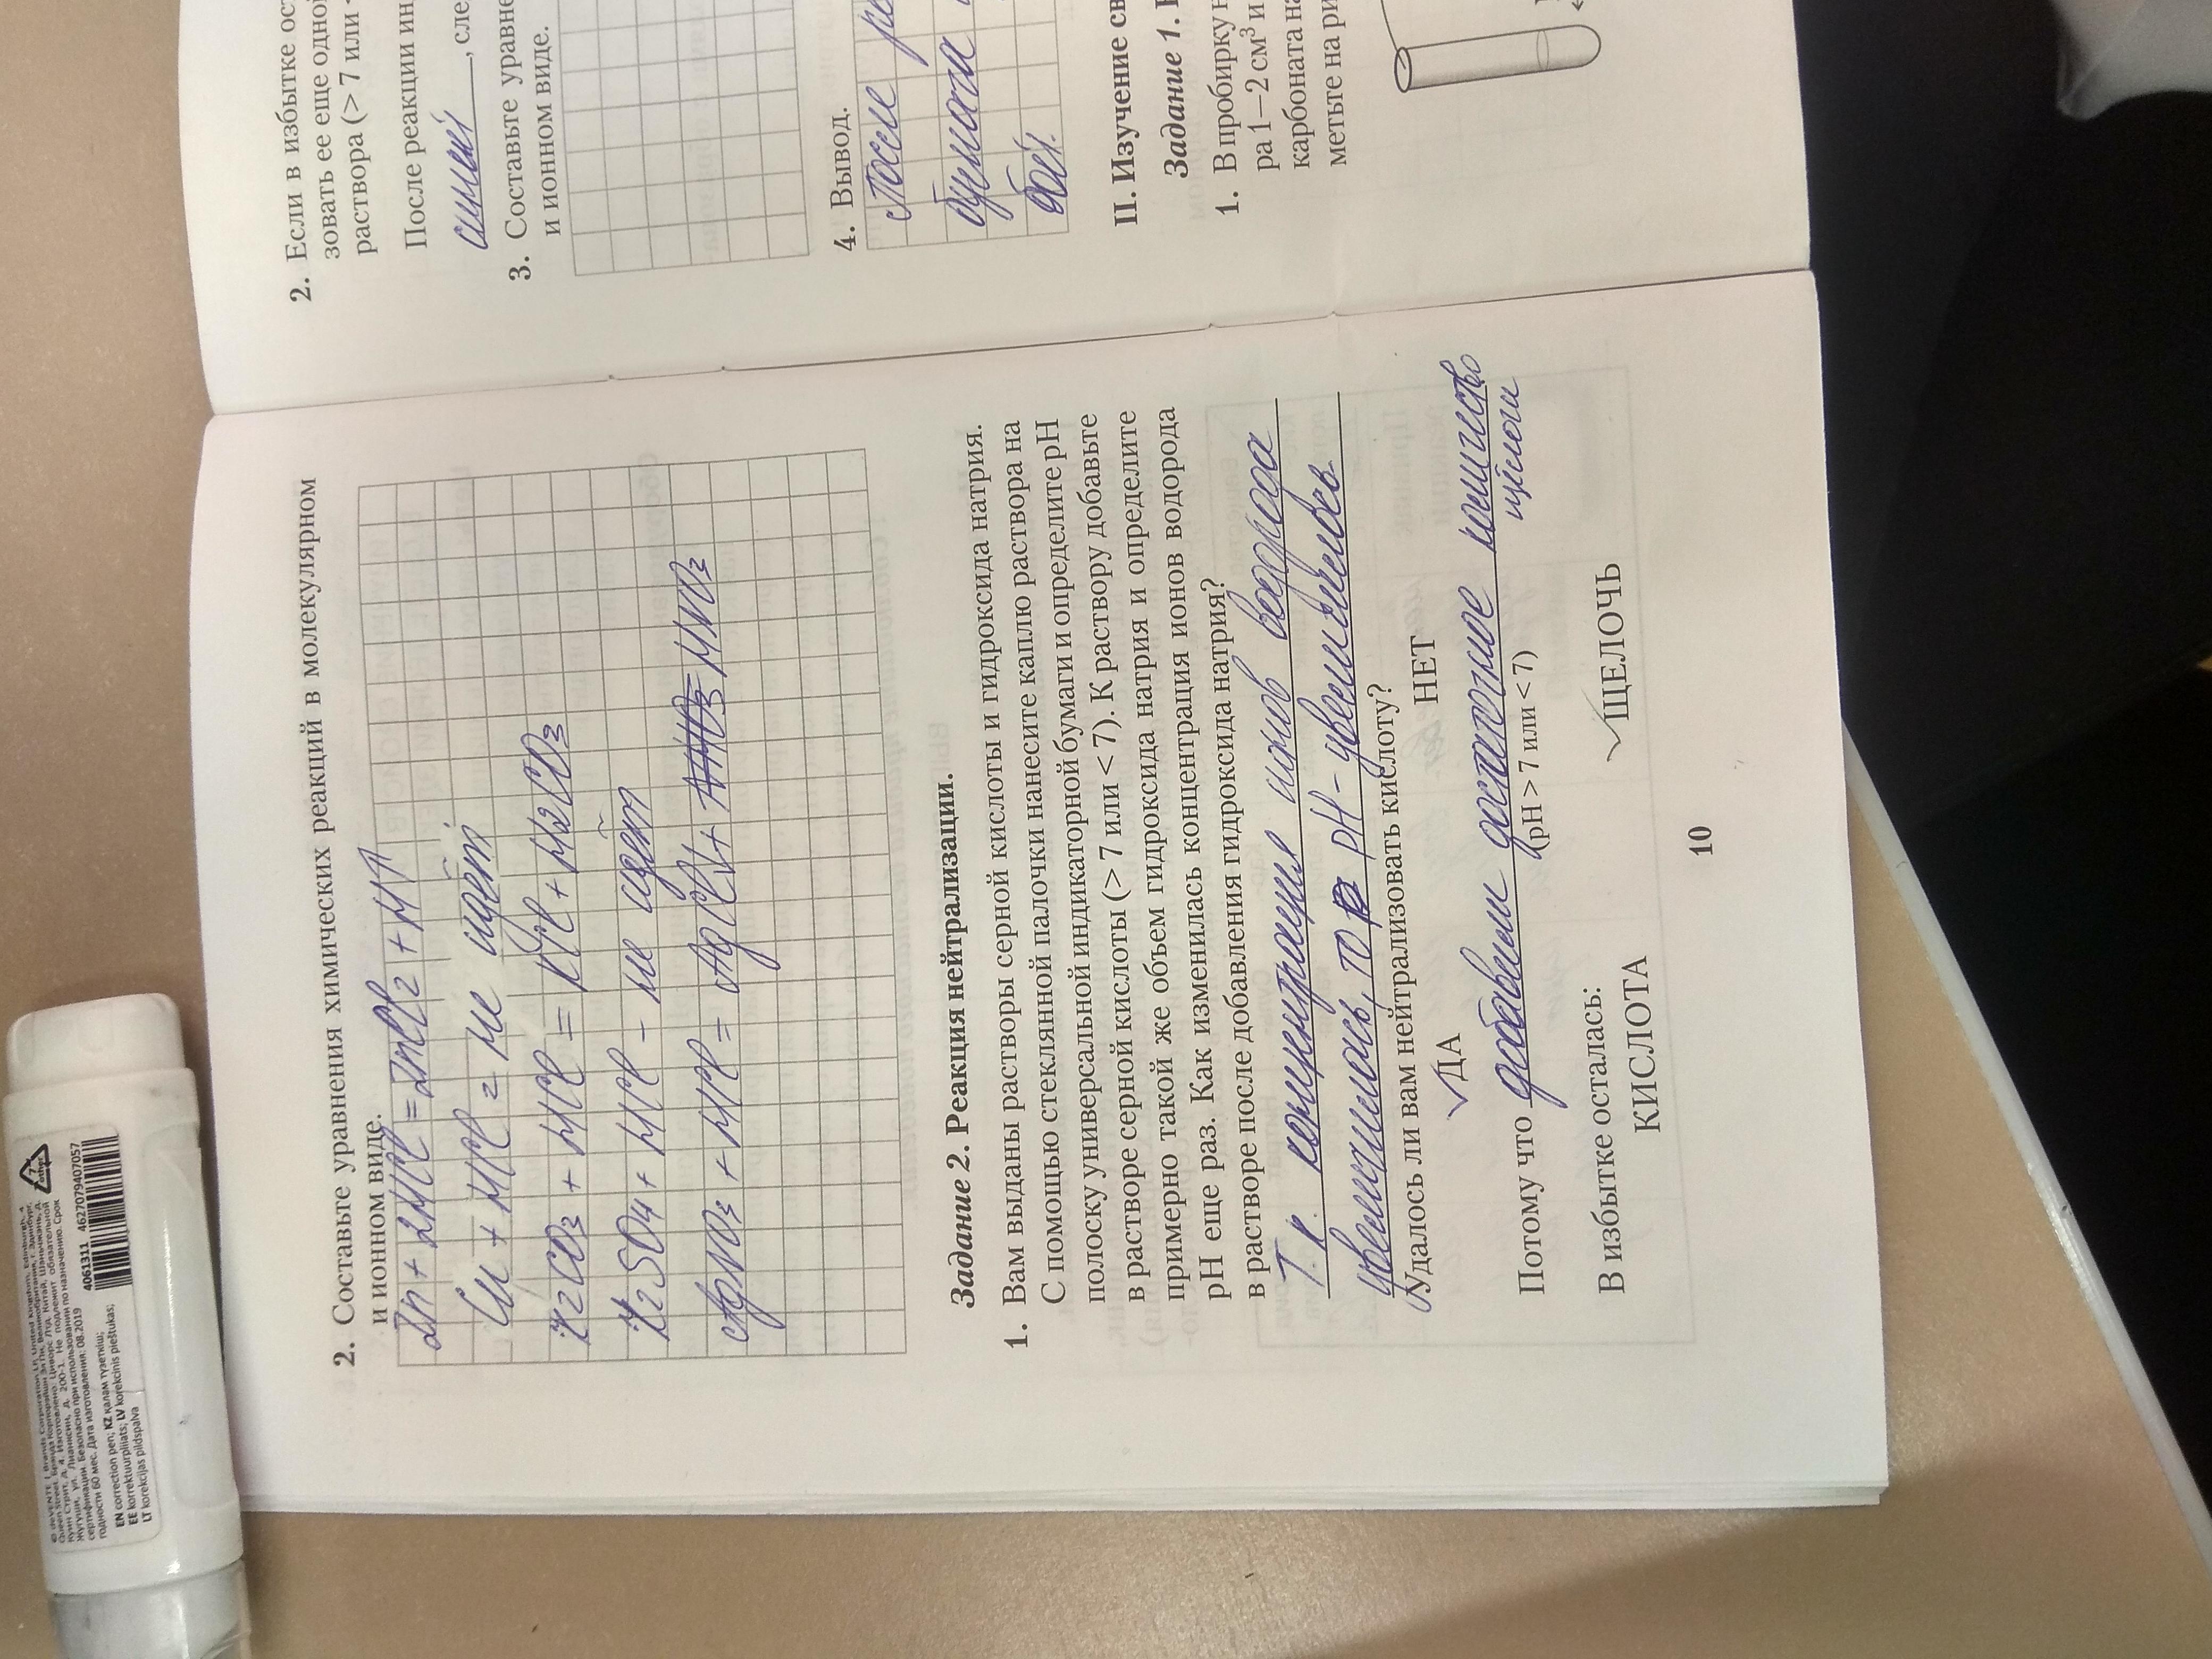 2. Составьте уравнения химических реакций в молекулярном
и ионном виде.
Zn + 2HCl = ZnCl2 + H↑
Cu + HCl = не идёт
K2CO3 + HCl = KCl + H2CO3
K2SO4 + HCl - не идёт
AgNO3 + HCl = AgCl↓ + HNO3
Задание 2. Реакция нейтрализации.
1. Вам выданы растворы серной кислоты и гидроксида натрия.
С помощью стеклянной палочки нанесите каплю раствора на
полоску универсальной индикаторной бумаги и определите pH
в растворе серной кислоты (> 7 или < 7). К раствору добавьте
примерно такой же объем гидроксида натрия и определите
pH еще раз. Как изменилась концентрация ионов водорода
в растворе после добавления гидроксида натрия?
Т.к. концентрация ионов водорода
увеличилась, то pH - увеличивось.
Удалось ли вам нейтрализовать кислоту?
✓ДА НЕТ
Потому что добавили достаточное количество
щёлочи
(pH > 7 или < 7)
В избытке осталась:
КИСЛОТА ✓ЩЕЛОЧЬ
10
2. Если в избытке ос
зовать ее еще одной
раствора (> 7 или <
После реакции ин
синий, сле
3. Составьте уравне
и ионном виде.
4. Вывод.
после ре
бумаги
бой.
II. Изучение св
Задание 1.
1. В пробирку н
ра 1—2 см³ и
карбоната на
метьте на ри
4061311 4627079407057
сертификации. Безопасно при использовании по назначению. Срок
годности 60 мес. Дата изготовления: 08.2019
EN correction pen; KZ қалам түзеткіш;
EE korrektuurpliiats; LV korekcinis pieštukas;
LT korekcijas pildspalva